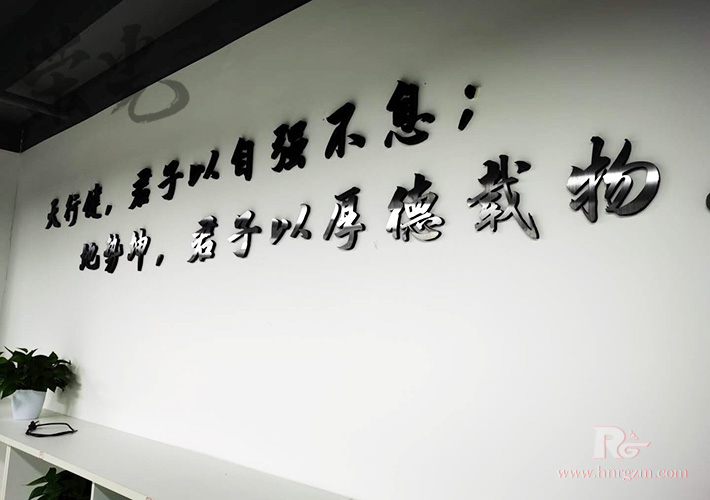 天行健，君子以自强不息；
地势坤，君子以厚德载物。
RG
www.hnrgzm.com